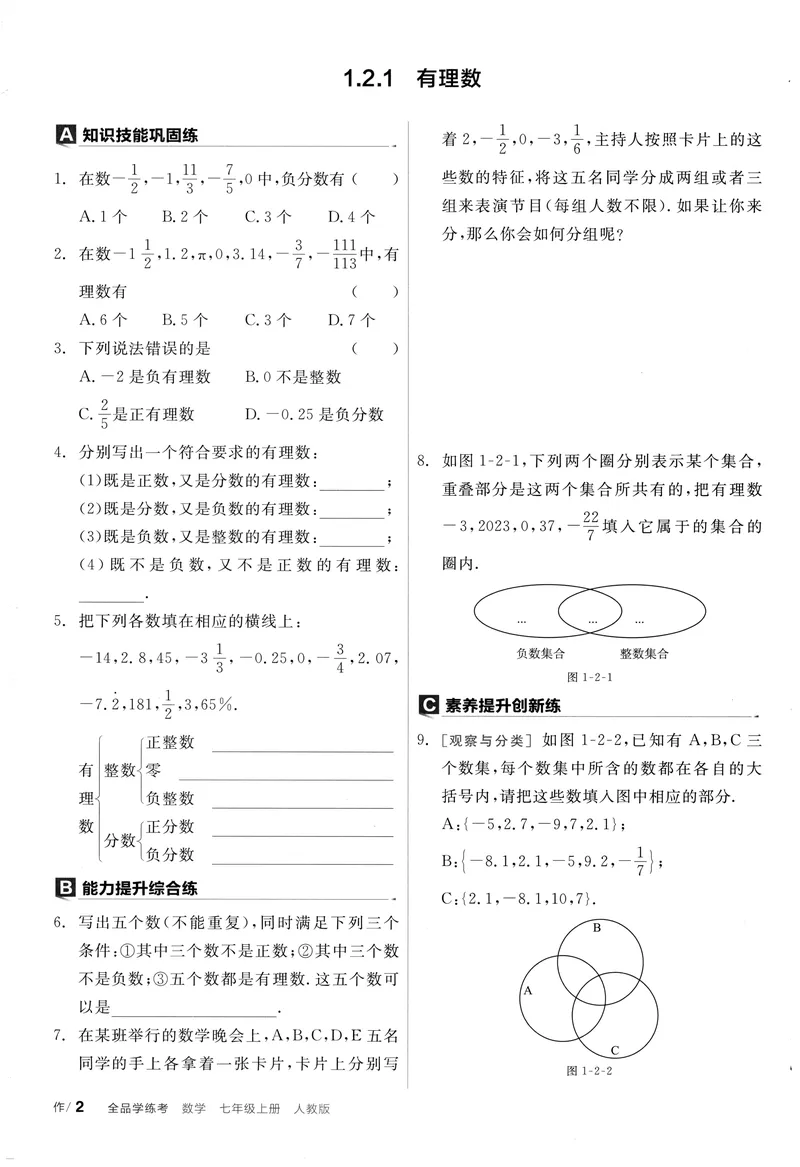 1.2.1 有理数
A 知识技能巩固练
1. 在数－1/2,－1,11/3,－7/5,0 中,负分数有（　　）
A. 1 个　B. 2 个　C. 3 个　D. 4 个
2. 在数－1 1/2,1.2,π,0,3.14,－3/7,－111/113中,有
理数有（　　）
A. 6 个　B. 5 个　C. 3 个　D. 7 个
3. 下列说法错误的是（　　）
A. －2 是负有理数　B. 0 不是整数
C. 2/5是正有理数　D. －0.25 是负分数
4. 分别写出一个符合要求的有理数:
(1)既是正数,又是分数的有理数:________;
(2)既是分数,又是负数的有理数:________;
(3)既是负数,又是整数的有理数:________;
(4)既不是负数,又不是正数的有理数:
________.
5. 把下列各数填在相应的横线上:
－14,2.8,45,－3 1/3,－0.25,0,－3/4,2.07,
－7.2̇,181,1/2,3,65%.
有理数
整数
正整数
零
负整数
分数
正分数
负分数
B 能力提升综合练
6. 写出五个数(不能重复),同时满足下列三个
条件:①其中三个数不是正数;②其中三个数
不是负数;③五个数都是有理数.这五个数可
以是____________________.
7. 在某班举行的数学晚会上,A,B,C,D,E 五名
同学的手上各拿着一张卡片,卡片上分别写
着 2,－1/2,0,－3,1/6,主持人按照卡片上的这
些数的特征,将这五名同学分成两组或者三
组来表演节目(每组人数不限).如果让你来
分,那么你会如何分组呢?
8. 如图 1-2-1,下列两个圈分别表示某个集合,
重叠部分是这两个集合所共有的,把有理数
－3,2023,0,37,－22/7填入它属于的集合的
圈内.
...　...　...
负数集合　整数集合
图 1-2-1
C 素养提升创新练
9. [观察与分类] 如图 1-2-2,已知有 A,B,C 三
个数集,每个数集中所含的数都在各自的大
括号内,请把这些数填入图中相应的部分.
A:{－5,2.7,－9,7,2.1};
B:{－8.1,2.1,－5,9.2,－1/7};
C:{2.1,－8.1,10,7}.
B
A
C
图 1-2-2
作/ 2 全品学练考 数学 七年级上册 人教版